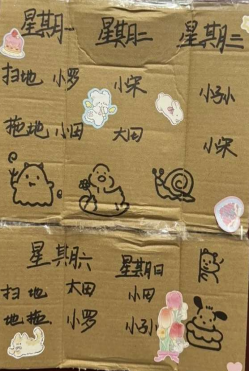 星期一 星期二 星期三
扫地 小罗 小宋 小孙
拖地 小田 大田 小宋
星期六 星期日
扫地 大田 小田
地拖 小罗 小孙